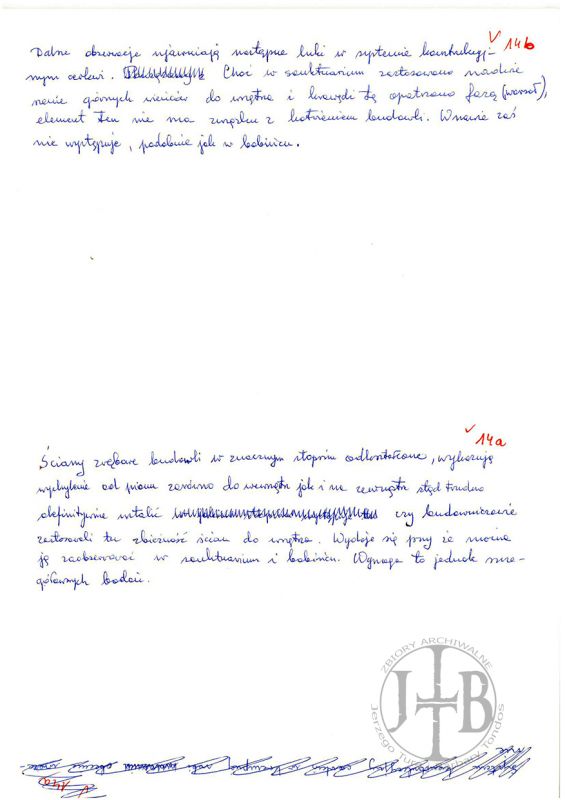 √ 14b
Dalsze obserwacje ujawniają następne luki w systemie konstrukcyj-
nym cerkwi. Choć w sanktuarium zastosowano
górnych wieńców do wnętrza i krawędź tą opatrzono fazą (warsoł),
element ten nie ma związku z budowli. W nawie zaś
nie występuje, podobnie jak w babińcu.
√ 14a
Ściany zrębowe budowli w znacznym stopniu odkształcone, wykazują
wychylenie od pionu zarówno do wewnątrz jak i na zewnątrz stąd trudno
definitywnie ustalić czy budowniczowie
zastosowali tu zbieżność ścian do wnętrza. Wydaje się przy że można
ją zaobserwować w sanktuarium i babińcu. Wymaga to jednak szcze-
gółowych badań.
ZBIORY ARCHIWALNE
JTB
Jerzego Tur Barbary Tondos
14a